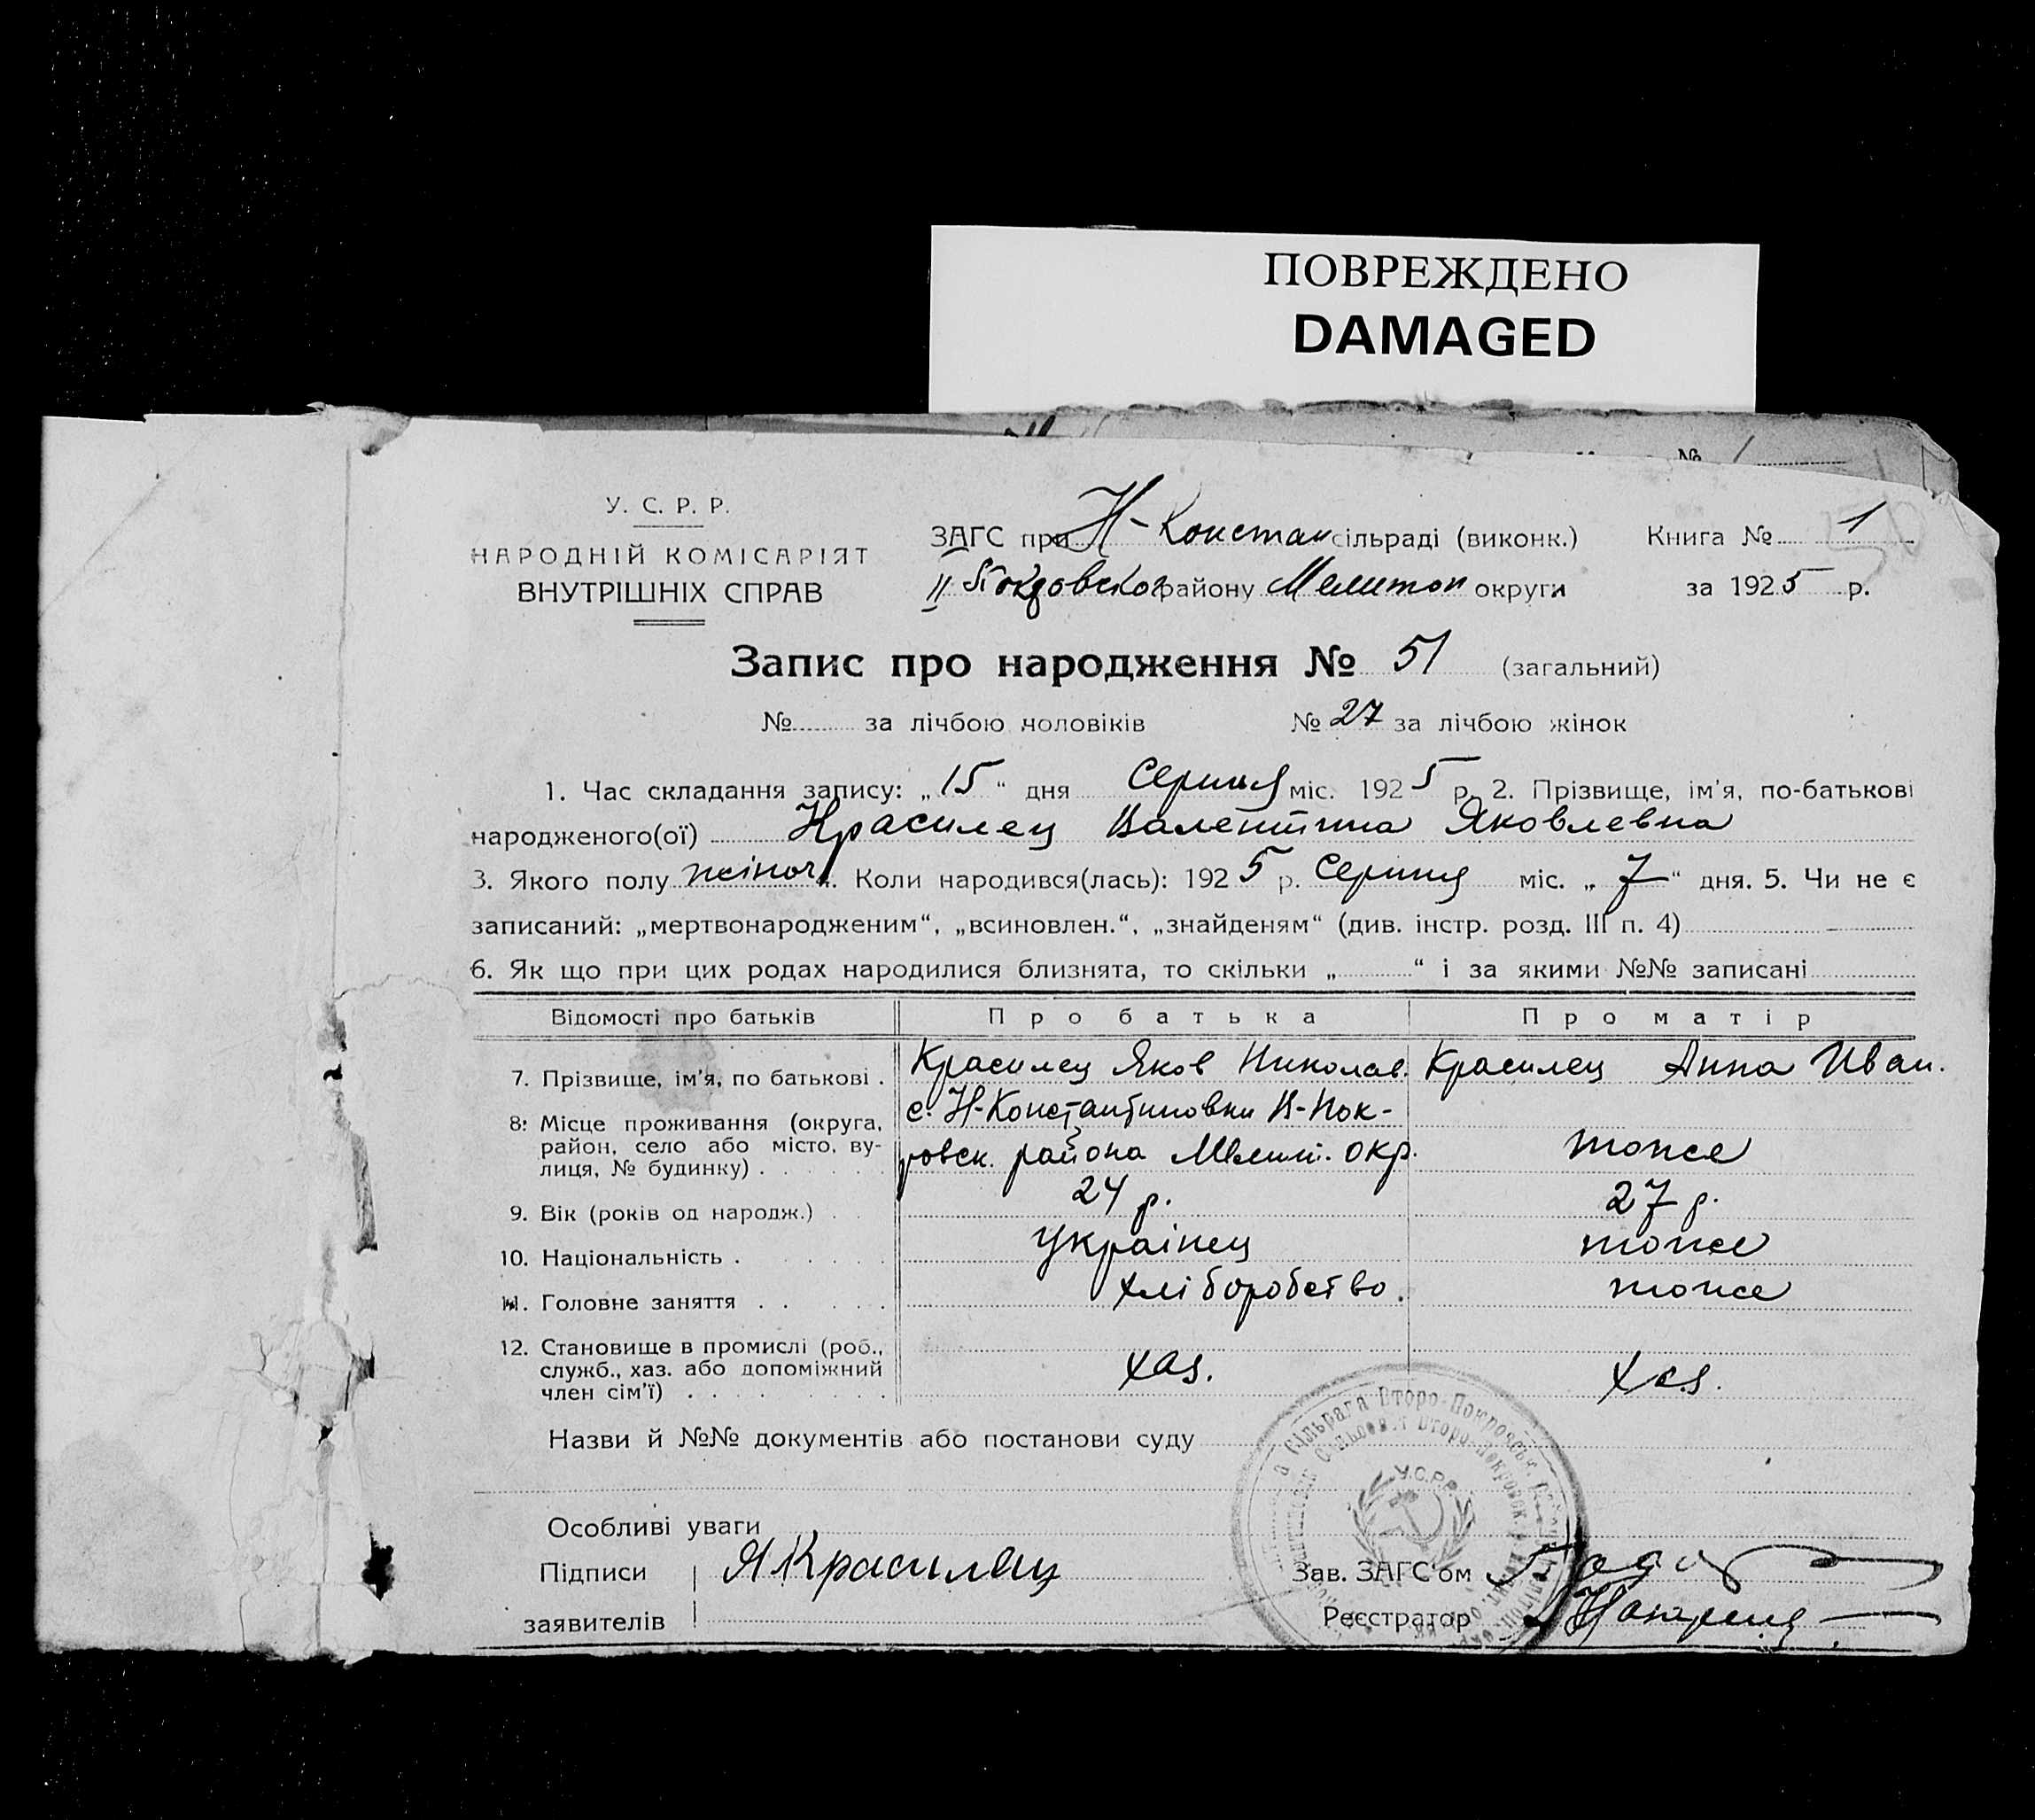 ПОВРЕЖДЕНО
DAMAGED
№ 1
У. С. Р. Р.
НАРОДНІЙ КОМІСАРІЯТ
ВНУТРІШНІХ СПРАВ
ЗАГС при Н-Констан сільраді (виконк.) Книга № 1
II Покровског району Мелитоп округи за 1925 р.
Запис про народження № 51 (загальний)
№ за лічбою чоловіків № 27 за лічбою жінок
1. Час складання запису: „15“ дня Серпня міс. 1925 р. 2. Прізвище, ім'я, по-батькові
народженого(ої) Красилец Валентина Яковлевна
3. Якого полу жіноч. Коли народився(лась): 1925 р. Серпня міс. „7“ дня. 5. Чи не є
записаний: „мертвонародженим“, „всиновлен.“, „знайденям“ (див. інстр. розд. III п. 4)
6. Як що при цих родах народилися близнята, то скільки „ “ і за якими №№ записані
Відомості про батьків Про батька Про матір
7. Прізвище, ім'я, по батькові . Красилец Яков Николав. Красилец Анна Иван.
8: Місце проживання (округа, район, село або місто, вулиця, № будинку) . с. Н-Константиновки II-Пок-
ровск. района Мелит. окр. тоже
9. Вік (років од народж.) 24 р. 27 р.
10. Національність . українец тоже
11. Головне заняття . хліборобство. тоже
12. Становище в промислі (роб., служб., хаз. або допоміжний член сім'ї) . хаз. хаз.
Назви й №№ документів або постанови суду
Сільрада Второ-Покровськ.
Второ-Покровск.
У.С.Р.Р.
Особливі уваги
Підписи ЯКрасилец Зав. ЗАГС'ом
заявителів Реєстратор